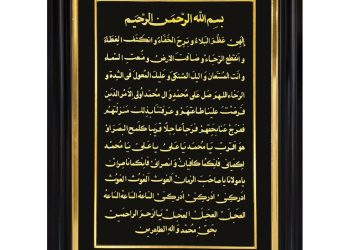 بِسْمِ اللهِ الرَّحْمٰنِ الرَّحِيْمِ
اِلٰهِىْ عَظُمَ الْبَلَاءُ وَ بَرِحَ الْخَفَاءُ وَ انْكَشَفَ الْغِطَاءُ
وَ انْقَطَعَ الرَّجَاءُ وَ ضَاقَتِ الْاَرْضُ وَ مُنِعَتِ السَّمَاءُ
وَ اَنْتَ الْمُسْتَعَانُ وَ اِلَيْكَ الْمُشْتَكٰى وَ عَلَيْكَ الْمُعَوَّلُ فِى الشِّدَّةِ وَ
الرَّخَاءِ اللهم صَلِّ عَلٰى مُحَمَّدٍ وَ الِ مُحَمَّدٍ اُولِى الْاَمْرِ الَّذِيْنَ
فَرَضْتَ عَلَيْنَا طَاعَتَهُمْ وَ عَرَّفْتَنَا بِذٰلِكَ مَنْزِلَتَهُمْ
فَفَرِّجْ عَنَّا بِحَقِّهِمْ فَرَجًا عَاجِلًا قَرِيْبًا كَلَمْحِ الْبَصَرِ اَوْ
هُوَ اَقْرَبُ يَا مُحَمَّدُ يَا عَلِىُّ يَا عَلِىُّ يَا مُحَمَّدُ
اِكْفِيَانِىْ فَاِنَّكُمَا كَافِيَانِ وَ انْصُرَانِىْ فَاِنَّكُمَا نَاصِرَانِ
يَا مَوْلَانَا يَا صَاحِبَ الزَّمَانِ الْغَوْثَ الْغَوْثَ الْغَوْثَ
اَدْرِكْنِىْ اَدْرِكْنِىْ اَدْرِكْنِىْ السَّاعَةَ السَّاعَةَ السَّاعَةَ
الْعَجَلَ الْعَجَلَ الْعَجَلَ يَا اَرْحَمَ الرَّاحِمِيْنَ
بِحَقِّ مُحَمَّدٍ وَ اٰلِهِ الطَّاهِرِيْنَ